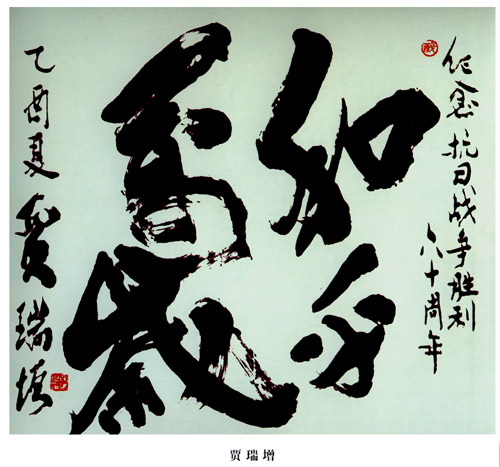 纪念抗日战争胜利
六十周年
和平
萬歲
乙酉夏 贾瑞增
贾瑞增